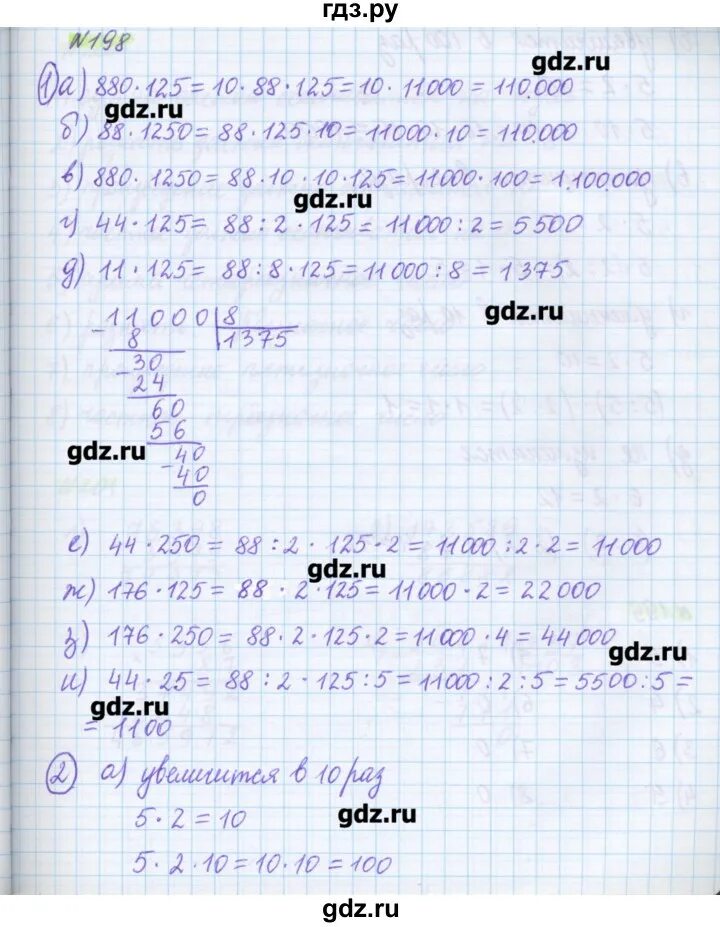 гдз.ру
№198
gdz.ru
1) а) 880·125=10·88·125=10·11000=110.000
gdz.ru
б) 88·1250=88·125·10=11000·10=110.000
в) 880·1250=88·10·10·125=11000·100=1.100.000
gdz.ru
г) 44·125=88:2·125=11000:2=5500
д) 11·125=88:8·125=11000:8=1375
gdz.ru
-11000|8
8 1375
-30
24
60
56
gdz.ru
-40
40
0
е) 44·250=88:2·125·2=11000:2·2=11000
gdz.ru
ж) 176·125=88·2·125=11000·2=22000
з) 176·250=88·2·125·2=11000·4=44000
gdz.ru
и) 44·25=88:2·125:5=11000:2:5=5500:5=
gdz.ru
=1100
2) а) увеличится в 10 раз
5·2=10
gdz.ru
5·2·10=10·10=100
gdz.ru